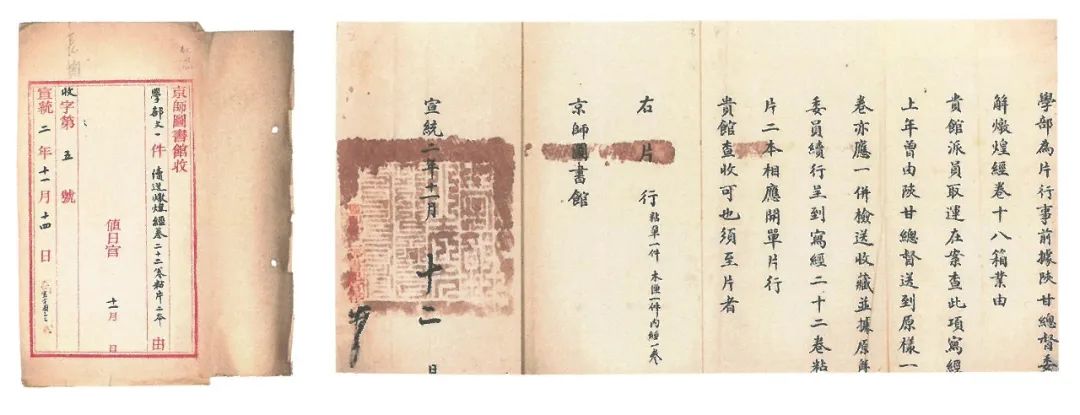 京師圖書館收
學部文一件 續送燉煌經卷二十二卷粘片二本 由
值日官 十一月 日
收字第五號
宣統二年十一月十四日
學部為片行事前據陝甘總督委
解燉煌經卷十八箱業由
貴館派員取運在案查此項寫經
上年曾由陝甘總督送到原樣一
卷亦應一併檢送收藏並據原解
委員續行呈到寫經二十二卷粘
片二本相應開單片行
貴館查收可也須至片者
右片行 粘單一件 木匣一件內經一卷
京師圖書館
宣統二年十一月十二日